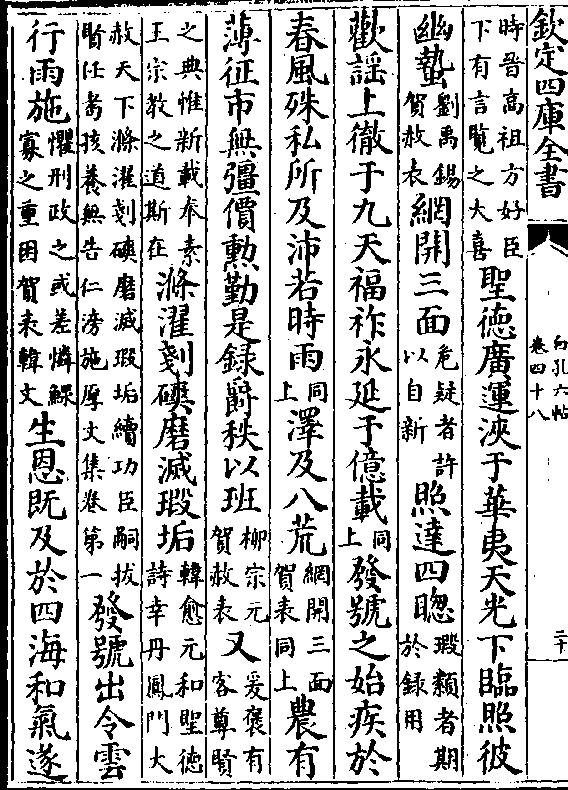 欽定四庫全書
白孔六帖
卷四十八
二十
時晉高祖方好臣下有言覽之大喜聖徳廣運浹于華夷天光下臨照彼
幽蟄劉禹錫賀赦表網開三面危疑者許以自新照達四聰瑕纇者期於録用
歡謡上徹于九天福祚永延于億載同上發號之始疾於
春風殊私所及沛若時雨同上澤及八荒網開三面賀表同上農有
薄征市無彊價勲勤是録爵秩以班柳宗元賀赦表又爰褒有客尊賢
之典惟新載奉素王宗教之道斯在滌濯剗磢磨滅瑕垢韓愈元和聖徳詩幸丹鳳門大
赦天下滌濯剗磢磨滅瑕垢續功臣嗣拔賢任耉孩養無告仁滂施厚文集卷第一發號出令雲
行雨施懼刑政之或差憐鰥寡之重困賀表韓文生恩既及於四海和氣遂